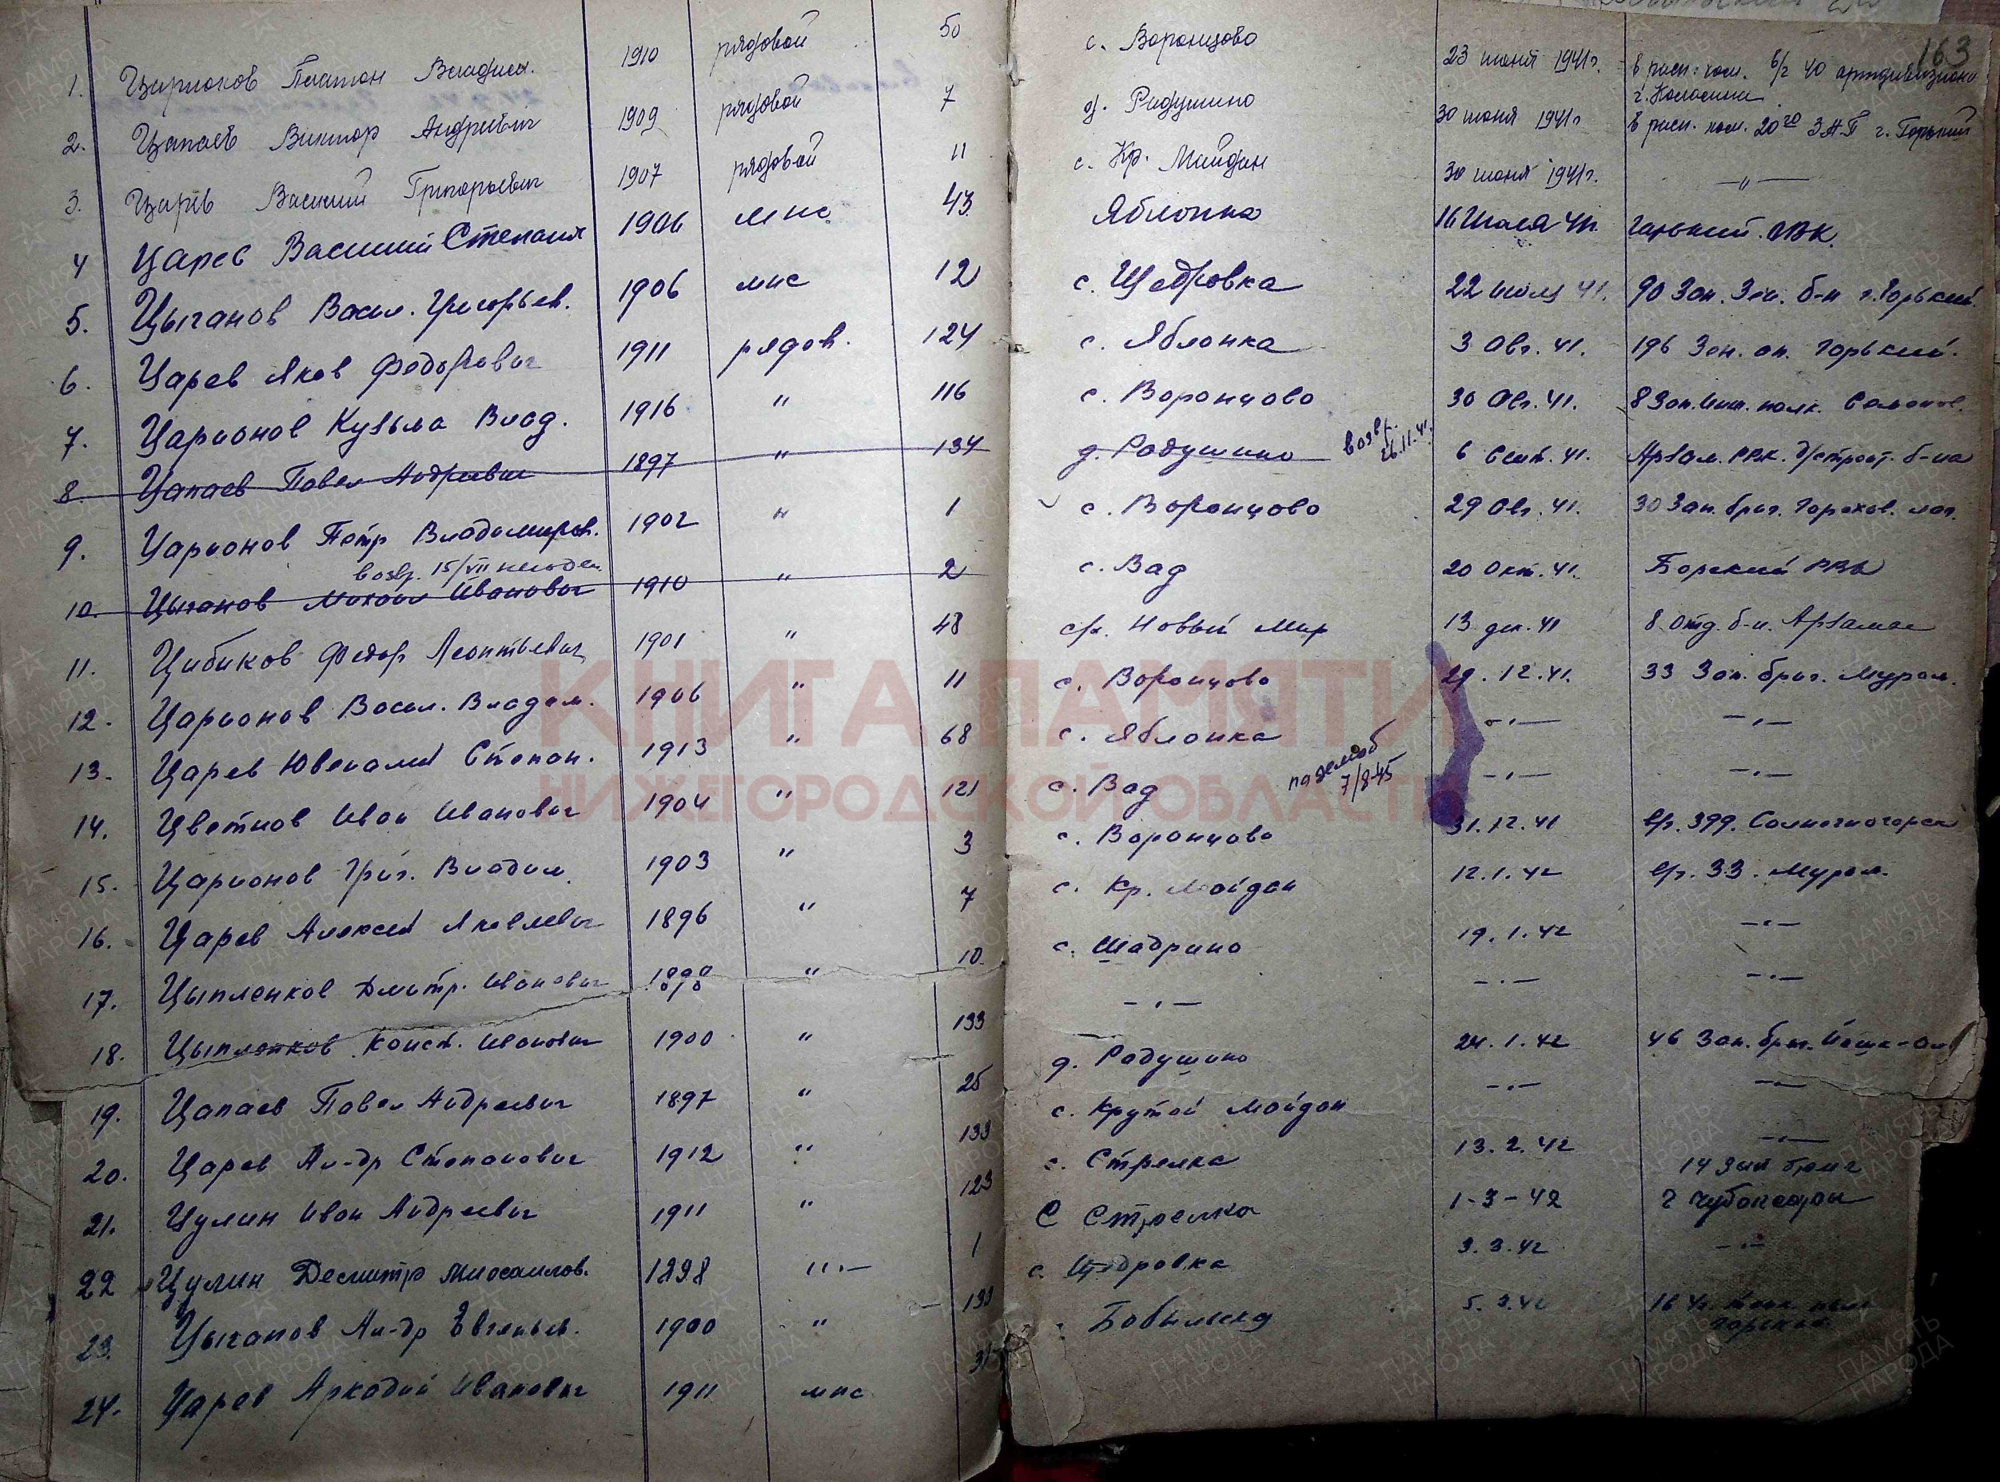 163
1. Платон Владим. 1910 рядовой 50 с. Воронцово 23 июня 1941г. в расп. ком. в/ч 40 артдивизиона
2. Цапаев Виктор Андреевич 1909 рядовой 7 д. Радушино 30 июня 1941г в расп. ком. 20го ЗАП г. Горький
3. Царев Василий Григорьевич 1907 рядовой 11 с. Кр. Майдан 30 июня 1941г. —"—
4 Царев Василий Степан 1906 мнс 43. Яблонка 16 Июля 41г. Горький. ГВК.
5. Цыганов Васил. Григорьев. 1906 мнс 12 с. Щедровка 22 июля 41. 90 Зап. Зен. б-н г. Горький.
6. Царев Яков Федорович 1911 рядов. 124 с. Яблонка 3 Авг. 41. 196 Зен. ап. Горький.
7. Царионов Кузьма Влад. 1916 " 116 с. Воронцово 30 Авг. 41. 8 Зап. полк.
8. Цапаев Павел Андреевич 1897 " 134 д. Радушино возвр. 26.11.41. 6 Сент. 41. Арзам. РВК. б-на
9. Царионов Петр Владимиров. 1902 " 1 с. Воронцово 29 Авг. 41. 30 Зап. бриг. Горохов. лаг.
возвр. 15/VII
10. Цыганов Михаил Иванович 1910 " 2 с. Вад 20 Окт. 41. Борский РВК
11. Цибиков Федор Леонтьевич 1901 " 48 Новый Мир 13 дек. 41 8 отд. б-н. Арзамас
12. Царионов Васил. Владим. 1906 " 11 с. Воронцово 29.12.41. 33 Зап. бриг. Муром.
13. Царев Ювеналий Степан. 1913 " 68 с. Яблонка —"— —"—
14. Цветков Иван Иванович 1904 " 121 с. Вад 7/8-45 —"— —"—
15. Царионов Григ. Владим. 1903 " 3 с. Воронцово 31.12.41 бр. 399. Солнечногорск
16. Царев Алексей Яковлевич 1896 " 7 с. Кр. Майдан 12.1.42 бр. 33. Муром.
17. Цыпленков Дмитр. Иванович 1898 " 10 с. Шадрино 19.1.42 —"—
18. Цыпленков Конст. Иванович 1900 " 133 —"— —"— —"—
19. Цапаев Павел Андреевич 1897 " 25 д. Радушино 24.1.42 46 Зап. бриг. Йошк-Ола
20. Царев Ал-др Степанович 1912 " 133 с. Крутой Майдан —"— —"—
21. Цулин Иван Андреевич 1911 " 123 с. Стрелка 13.2.42 —"—
22 Цулин Дмитр Михаилов. 1898 "— 1 С Стрелка 1-3-42 14 Зап бриг г Чубоксары
23. Цыганов Ал-др Евгеньев. 1900 " 133 с. Щедровка 3.3.42 —"—
24. Царев Аркадий Иванович 1911 мнс Бобыльска 5.3.42 Горький.
КНИГА ПАМЯТИ
НИЖЕГОРОДСКОЙ ОБЛАСТИ
ПАМЯТЬ НАРОДА